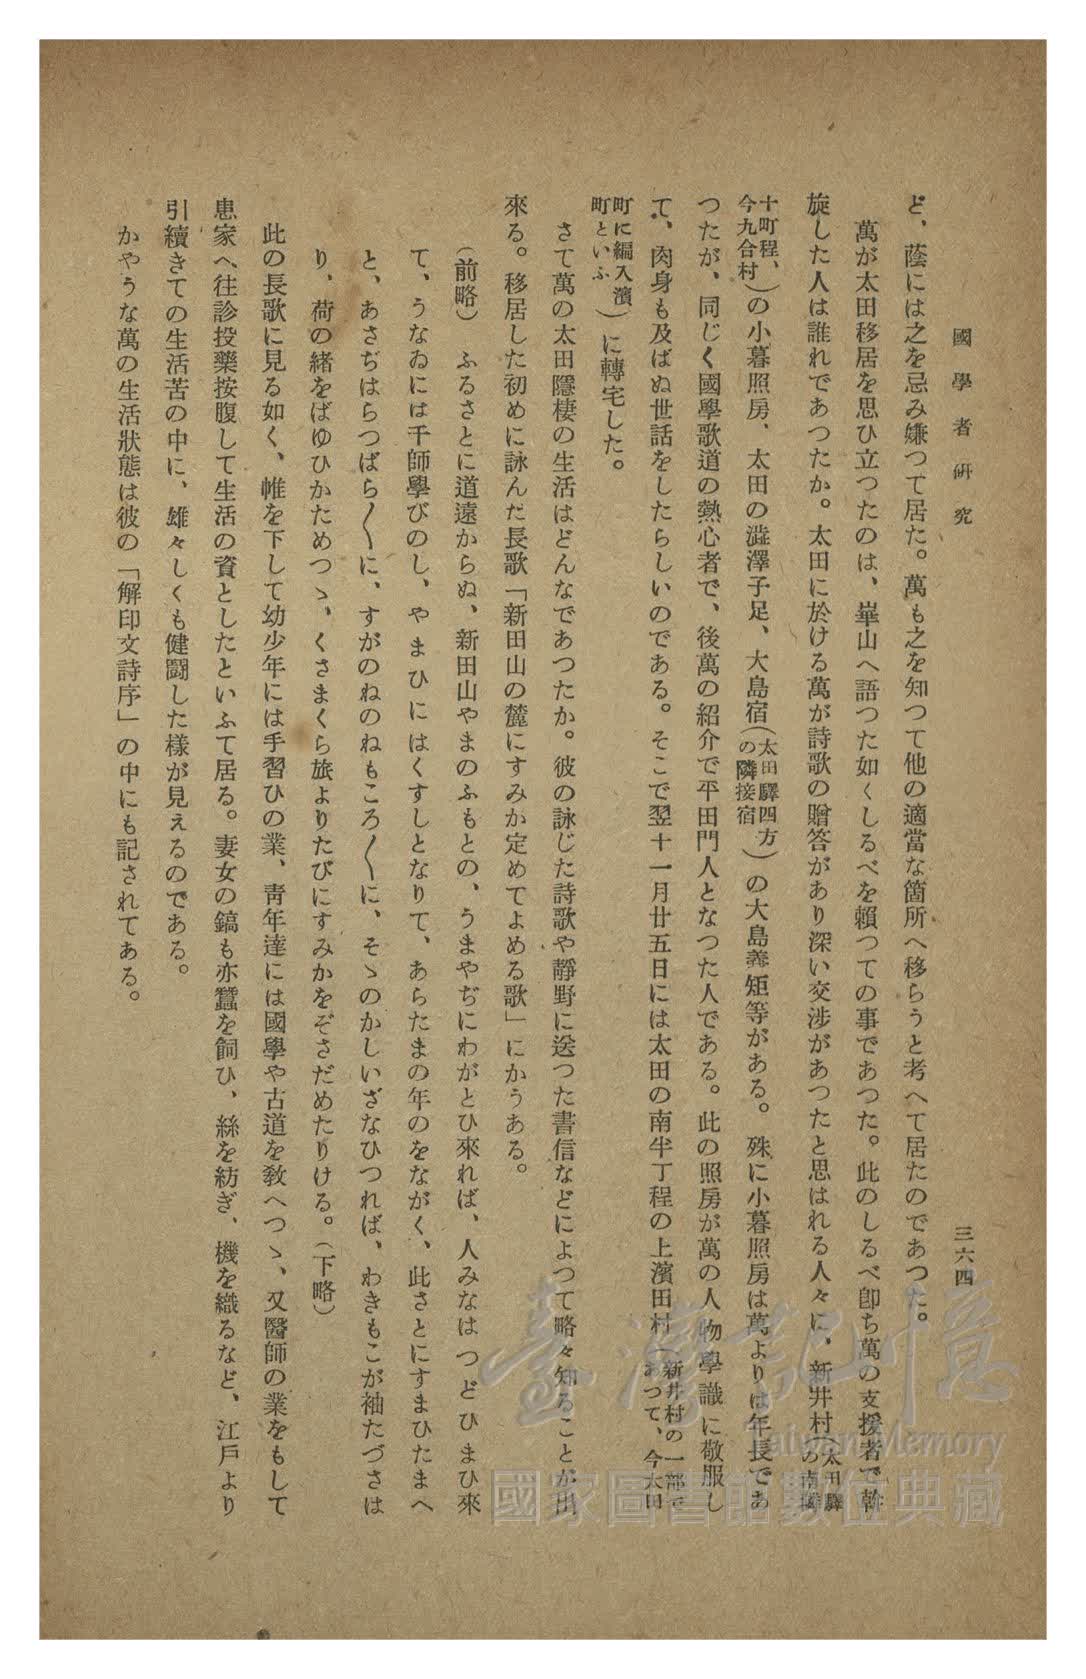 國學者研究
三六四
ど、蔭には之を忌み嫌つて居た。萬も之を知つて他の適當な箇所へ移らうと考へて居たのであつた。
萬が太田移居を思ひ立つたのは、崋山へ語つた如くしるべを賴つての事であつた。此のしるべ卽ち萬の支援者で斡
旋した人は誰れであつたか。太田に於ける萬が詩歌の贈答があり深い交渉があつたと思はれる人々に、新井村(太田驛の南隣
十町程、今九合村)の小暮照房、太田の澁澤子足、大島宿(太田驛四方の隣接宿)の大島義矩等がある。殊に小暮照房は萬よりは年長であ
つたが、同じく國學歌道の熱心者で、後萬の紹介で平田門人となつた人である。此の照房が萬の人物學識に敬服し
て、肉身も及ばぬ世話をしたらしいのである。そこで翌十一月廿五日には太田の南半丁程の上濱田村(新井村の一部であつて、今太田
町に編入濱町といふ)に轉宅した。
さて萬の太田隱棲の生活はどんなであつたか。彼の詠じた詩歌や靜野に送つた書信などによつて略々知ることが出
來る。移居した初めに詠んだ長歌「新田山の麓にすみか定めてよめる歌」にかうある。
(前略) ふるさとに道遠からぬ、新田山やまのふもとの、うまやぢにわがとひ來れば、人みなはつどひまひ來
て、うなゐには千師學びのし、やまひにはくすしとなりて、あらたまの年のをながく、此さとにすまひたまへ
と、あさぢはらつばら〱に、すがのねのねもころ〱に、そゝのかしいざなひつれば、わきもこが袖たづさは
り、荷の緒をばゆひかためつゝ、くさまくら旅よりたびにすみかをぞさだめたりける。(下略)
此の長歌に見る如く、帷を下して幼少年には手習ひの業、靑年達には國學や古道を敎へつゝ、又醫師の業をもして
患家へ往診投藥按腹して生活の資としたといふて居る。妻女の鎬も亦蠶を飼ひ、絲を紡ぎ、機を織るなど、江戶より
引續きての生活苦の中に、雄々しくも健鬪した樣が見えるのである。
かやうな萬の生活狀態は彼の「解印文詩序」の中にも記されてある。
臺灣記憶
Taiwan Memory
國家圖書館數位典藏